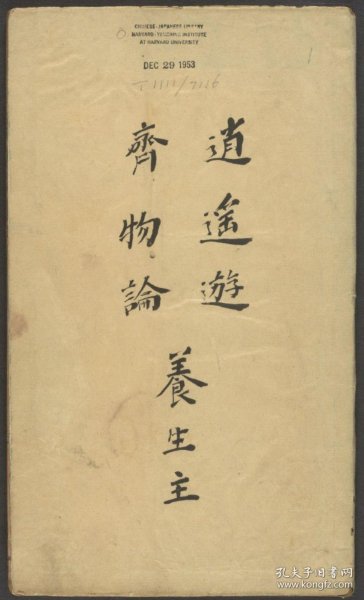 CHINESE-JAPANESE LIBRARY
HARVARD-YENCHING INSTITUTE
AT HARVARD UNIVERSITY
DEC 29 1953
T 1111/7116
逍遙遊
齊物論
養生主
孔夫子旧书网
www.kongfz.com